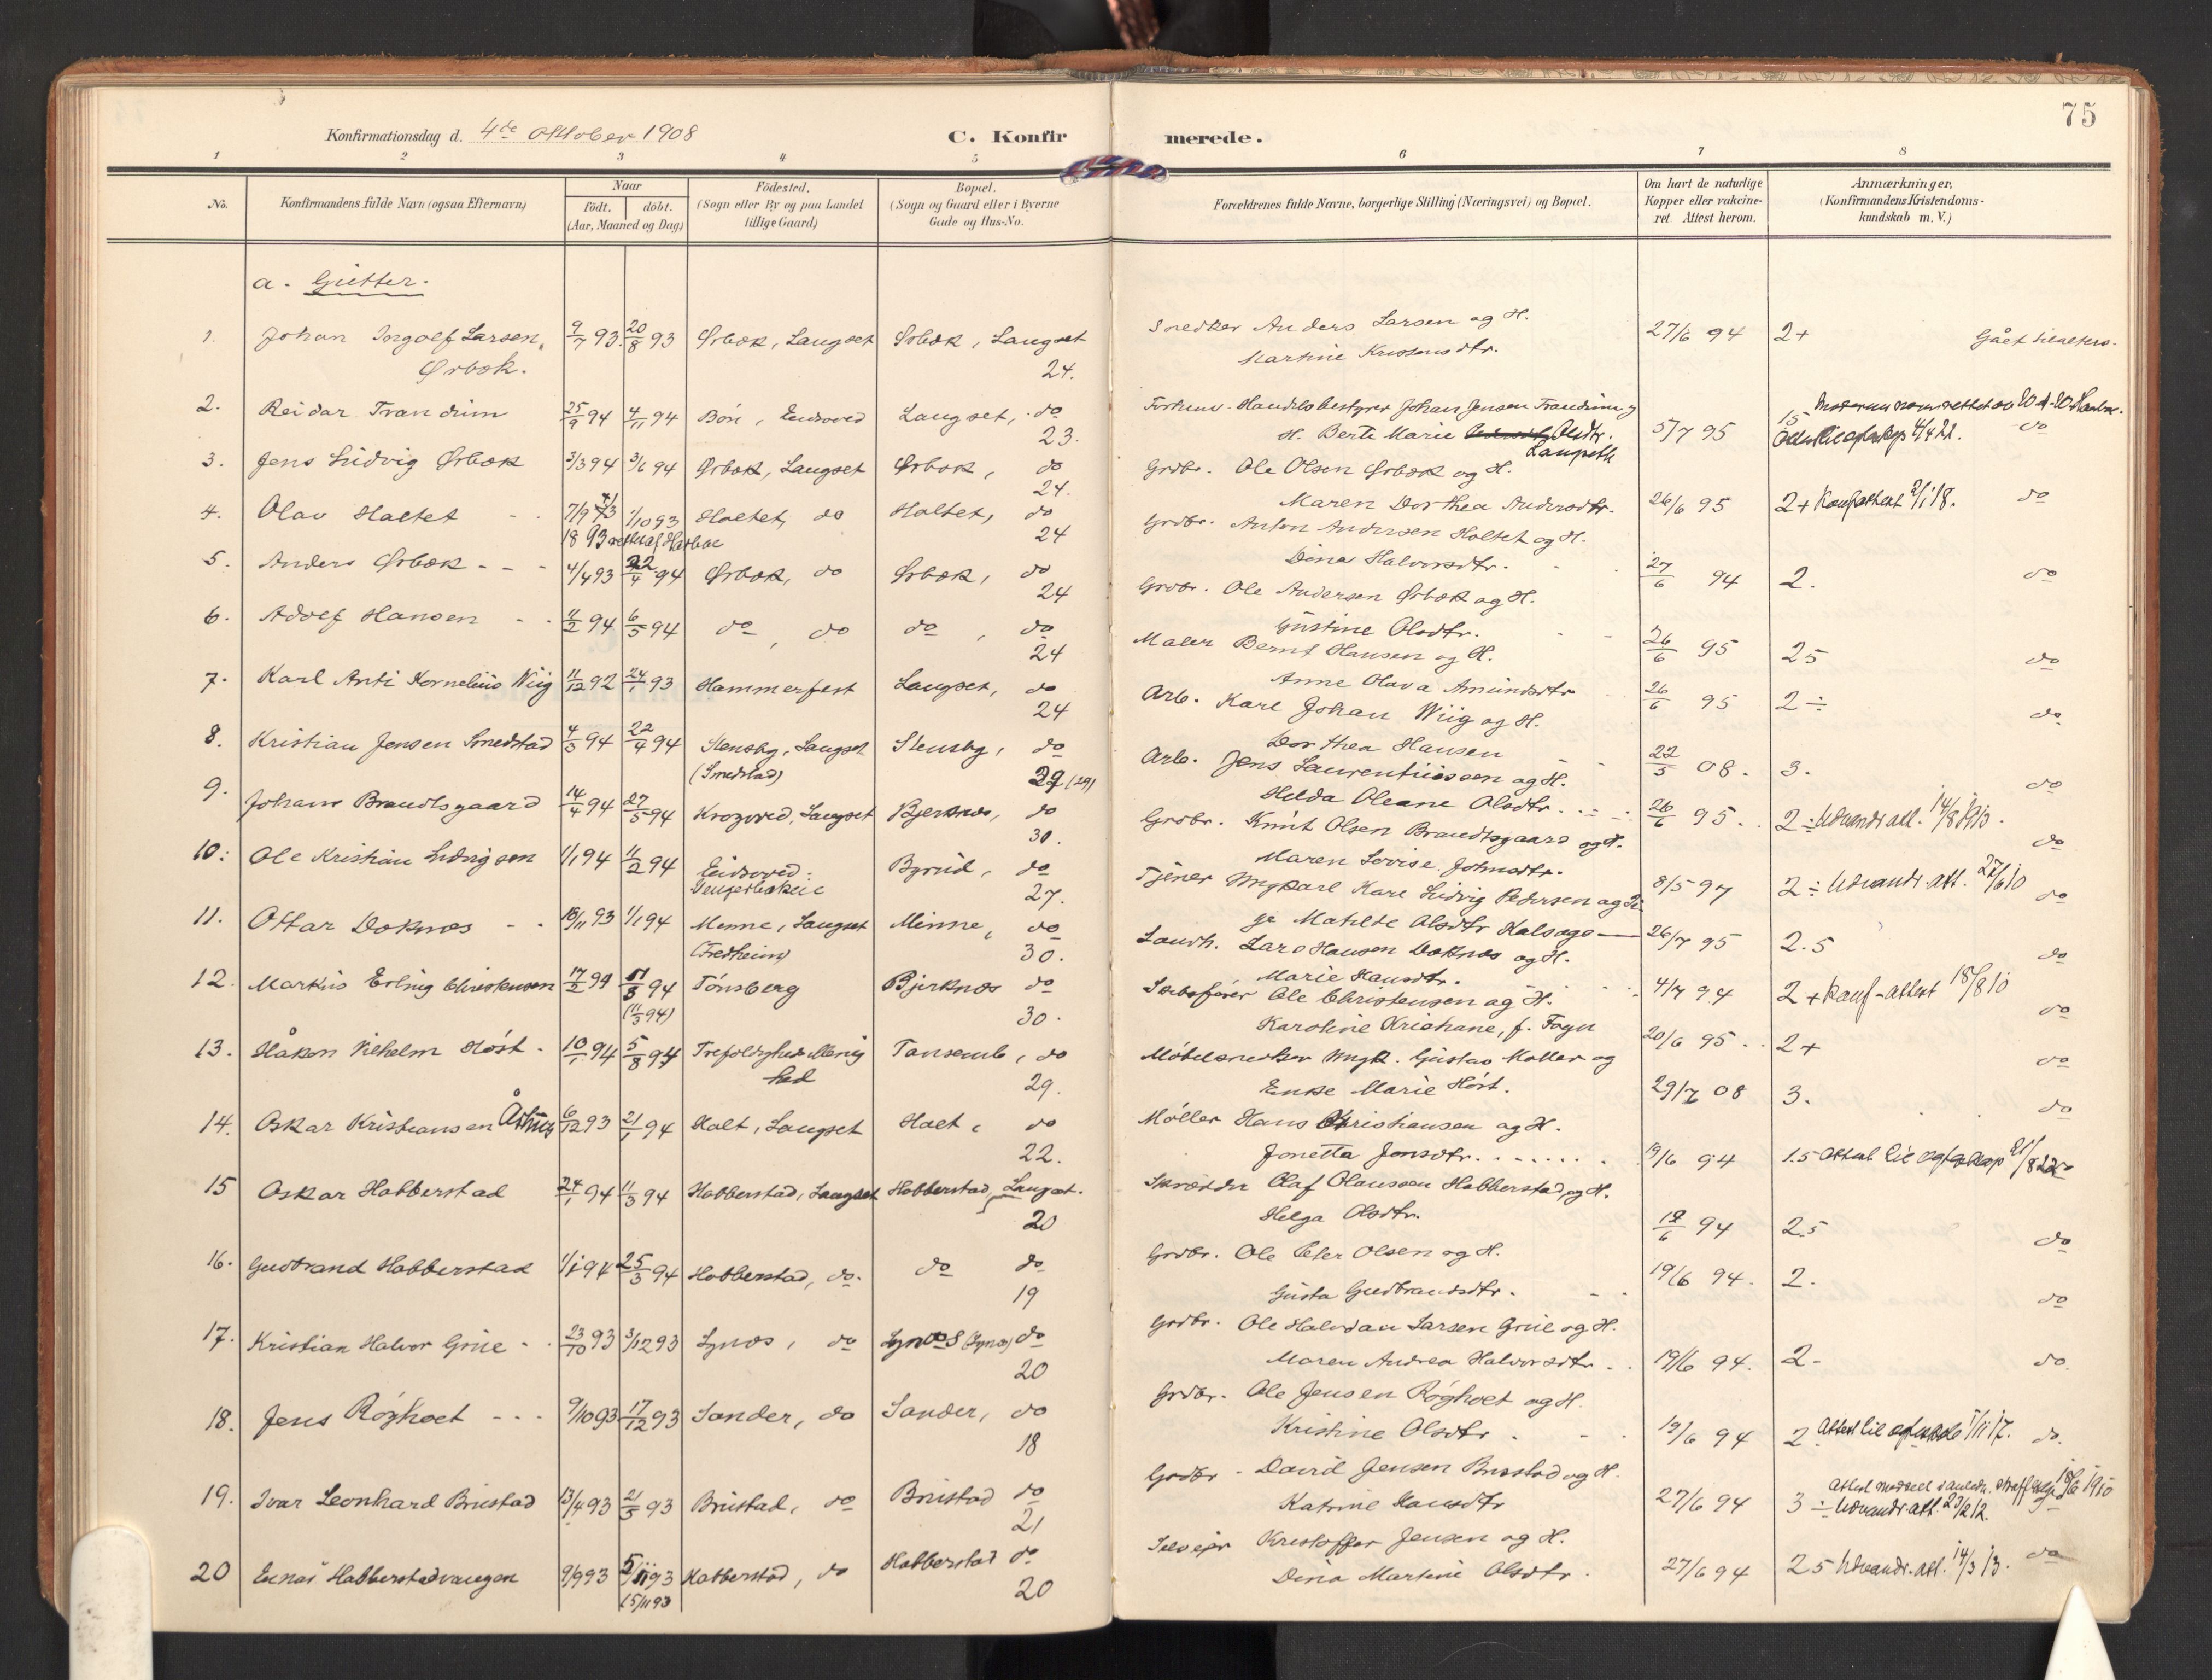 75
Konfirmationsdag d. 4de Oktober 1908
C. Konfirmerede.
1 2 3 4 5 6 7 8
No.
Konfirmandens fulde Navn (ogsaa Efternavn)
Naar
født. døbt.
(Aar, Maaned og Dag)
Födested.
(Sogn eller By og paa Landet
tillige Gaard)
Bopæl.
(Sogn og Gaard eller i Byerne
Gade og Hus-No.
Forældrenes fulde Navne, borgerlige Stilling (Næringsvei) og Bopæl.
Om havt de naturlige
Kopper eller vakcine-
ret. Attest herom.
Anmærkninger.
(Konfirmandens Kristendoms-
kundskab m. V.)
a. Gutter.
1. Johan Ingolf Larsen, 9/7 93. 20/8 93 Ørbæk, Langset Ørbæk, Langset
Ørbæk. 24.
Snedker Anders Larsen og H.
Martine Kristensdtr.
27/6 94 2+ Gået til alters.
2. Reidar Trandum 25/9 94 4/11 94 Bøn, Eidsvold Langset, do
23.
Forhenv. Handelsbestyrer Johan Jensen Trandum og
H. Berte Marie Olsdtr.
Langseth
5/7 95 15 do
3. Jens Ludvig Ørbæk 3/3 94 3/6 94 Ørbæk, Langset Ørbæk, do
24.
Grdbr. Ole Olsen Ørbæk og H.
Maren Dorthea Andersdtr.
26/6 95 2+ Konf.attest 2/1 18. do
4. Olav Holtet 7/9 93 1/10 93 Holtet, do Holtet, do
24
Grdbr. Anton Andersen Holtet og H.
Dina Halvorsdtr.
27/6 94 2. do
5. Anders Ørbæk 4/4 93 22/4 94 Ørbæk, do Ørbæk, do
24
Grdbr. Ole Andersen Ørbæk og H.
Gustine Olsdtr.
26/6 95 25 do
6. Adolf Hansen 11/2 94 6/5 94 do, do do, do
24
Maler Bernt Hansen og H.
Anne Olava Amundsdtr.
26/6 95 2÷ do
7. Karl Anti Kornelius Wiig 11/12 92 24/1 93 Hammerfest Langset, do
24
Arb. Karl Johan Wiig og H.
Dorthea Hansen
22/5 08. 3. do
8. Kristian Jensen Smedstad 4/3 94 22/4 94 Stensby, Langset Stensby, do
(Smedstad) 29 (29)
Arb. Jens Laurentiussen og H.
Helda Oleane Olsdtr.
26/6 95. 2÷ Udvandr.att. 14/8 1913. do
9. Johan Brandtsgaard 14/4 94 27/5 94 Krogved, Langset Bjerknes, do
30.
Grdbr. Knut Olsen Brandtsgaard og H.
Maren Lovise Johnsdtr.
8/5 97 2÷ Udvandr.att. 27/6 10 do
10. Ole Kristian Ludvigsen 1/1 94 11/2 94 Eidsvold: Byrud, do
27.
Tjener Ungkarl Karl Ludvig Pedersen og Pi-
ge Matilde Olsdtr Kalsage
26/7 95 2.5 do
11. Ottar Doknes 10/11 93 1/1 94 Minne, Langset Minne, do
(Fredheim) 30.
Landh. Lars Hansen Doknes og H.
Marie Hansdtr.
4/7 94 2+ Konf-attest 18/8 10 do
12. Markus Erling Christensen 17/2 94 11/3 94 Tönsberg Bjerknes do
(11/3 94) 30.
Skibsfører Ole Christensen og H.
Karoline Kristiane, f. Foyn
20/6 95 2+ do
13. Håkon Vilhelm Höst 10/1 94 5/8 94 Trefoldigheds Menig- Tansemb, do
hed 29.
Möbelsnedker Ungk. Gustav Møller og
Enke Marie Höst.
29/7 08 3. do
14. Oskar Kristiansen Åsmund 6/12 93 21/1 94 Holt, Langset Holt, do
22.
Møller Hans Christiansen og H.
Jonetta Jensdtr.
19/6 94 1.5 do
15 Oskar Habberstad 24/1 94 11/3 94 Habberstad, Langset Habberstad, Langset.
20
Skrædder Olaf Olaussen Habberstad og H.
Helga Olsdtr.
19/6 94 2.5 do
16. Gudbrand Habberstad 1/1 94 25/3 94 Habberstad, do. do do
19
Grdbr. Ole Peter Olsen og H.
Gusta Gudbrandsdtr.
19/6 94. 2. do
17. Kristian Halvor Grue 23/10 93 3/12 93 Lynæs, do Lynæs (Lynæs) do
20
Grdbr. Ole Halvdan Larsen Grue og H.
Maren Andrea Halvorsdtr.
19/6 94. 2- do.
18. Jens Røghoet 9/10 93 17/12 93 Sander, do Sander, do
18
Grdbr. Ole Jensen Røghoet og H.
Kristine Olsdtr.
19/6 94 2 do.
19. Ivar Leonhard Brustad 13/4 93 21/5 93 Brustad, do Brustad do
21
Grdbr. David Jensen Brustad og H.
Katrine Hansdtr
27/6 94 3÷ Udvandr.att. 23/2 12.
20 Einar Habberstadvangen 9/9 93 5/11 93 Habberstad, do Habberstad do
(5/11 93 20
Selveier Kristoffer Jensen og H.
Dina Martine Olsdtr.
27/6 94 25 Udvandr.att. 14/3 13. do